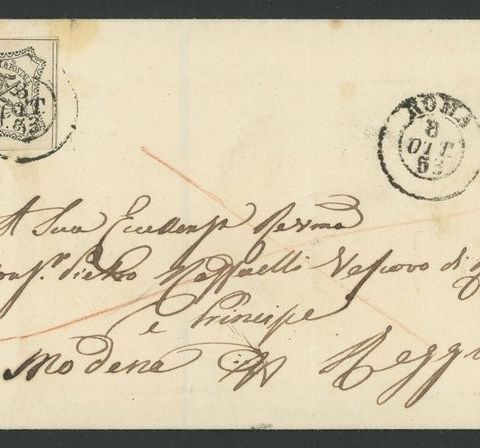 ROMA
8
OTT
53
A Sua Eccellenza Revma
Monsr. Pietro Raffaelli Vescovo di
e Principe
Modena Regg